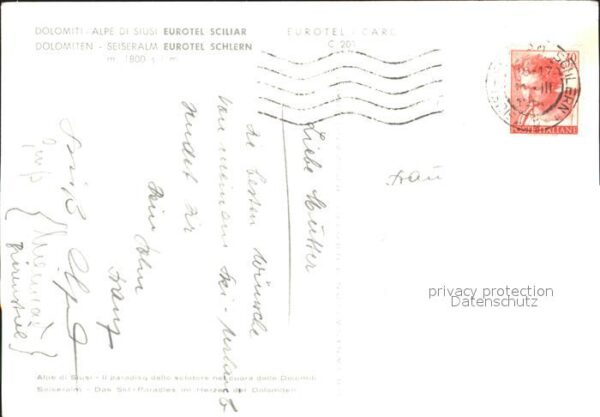 DOLOMITI - ALPE DI SIUSI EUROTEL SCILIAR
DOLOMITEN - SEISERALM EUROTEL SCHLERN
m 1800 s/m
EUROTEL / CARC
C 201
SCHLERN
POSTE ITALIANE
Liebe Mutter
die besten Wünsche
von meinem Ski-
sendet dir
Dein Sohn
Franz
Frau
privacy protection
Datenschutz
Alpe di Siusi - Il paradiso dello sciatore nel cuore delle Dolomiti
Seiseralm - Das Ski-Paradies im Herzen der Dolomiten